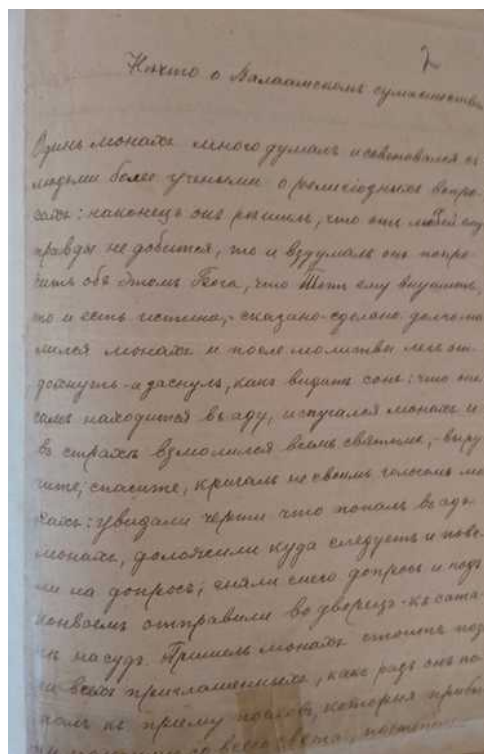 2
Нѣчто о Валаамскомъ сумашествіи
Одинъ монахъ много думалъ и совѣтовался съ
людьми более учеными о религіозныхъ вопро-
сахъ: наконецъ онъ рѣшилъ, что отъ людей ему
правды не добится, то и вздумалъ онъ попро-
сить объ этомъ Бога, что Тотъ ему внушитъ,
то и есть истина, - сказано-сделано долго мо
лился монахъ и после молитвы легъ от-
дохнуть и заснулъ, какъ видитъ сонъ: что онъ
самъ находится въ аду, испугался монахъ и
въ страхѣ взмолился всемъ святымъ, - выру
чите, спасите, кричалъ не своимъ голосомъ мо
нахъ: увидали черти что попалъ въ адъ
монахъ, доложили куда следуетъ и пове-
ли на допросъ; сняли снего допросъ и подъ
конвоемъ отправили во дворецъ-къ сата-
нѣ на судъ. Пришелъ монахъ стоитъ поз
ди всехъ приглашенныхъ, какъ разъ онъ по
палъ къ приему пословъ, которыя прибы
со всего света,